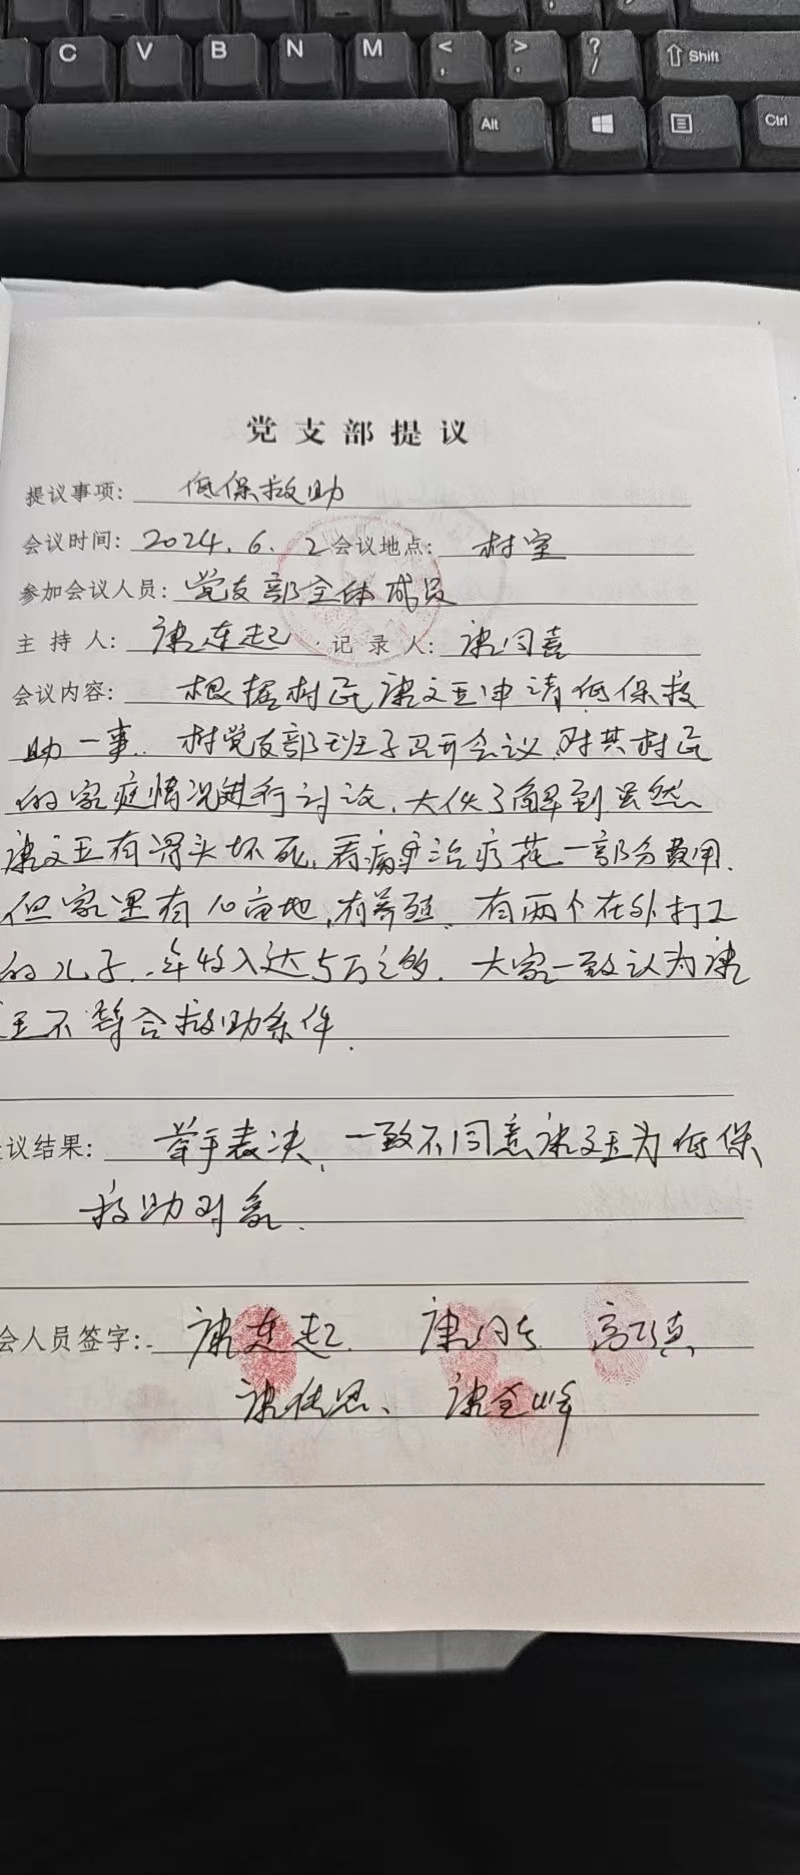 C V B N M < , > . ? / Shift
Alt Ctrl
党支部提议
提议事项: 低保救助
会议时间: 2024.6.2 会议地点: 村室
参加会议人员: 党支部全体成员
主持人: 康连起 记录人: 康同喜
会议内容: 根据村民康文玉申请低保救
助一事. 村党支部班子召开会议,对其村民
的家庭情况进行讨论,大伙了解到虽然
康文玉有骨头坏死,看病治疗花一部分费用.
但家里有10亩地,有养殖、有两个在外打工
的儿子.年收入达5万之多.大家一致认为康
玉不符合救助条件.
议结果: 举手表决,一致不同意康文玉为低保
救助对象.
会人员签字: 康连起
康全峰